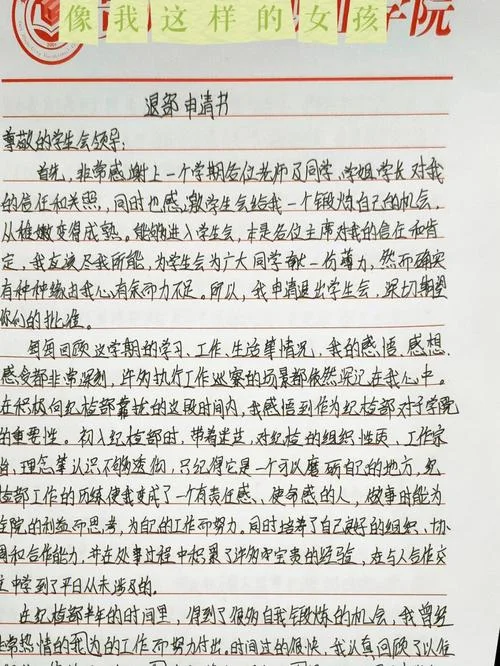 像我这样的女孩
学院
退部申请书
尊敬的学生会领导:
首先,非常感谢上一个学期各位老师及同学,学姐,学长对我
的信任和关照,同时也感激学生会给我一个锻炼自己的机会,
从稚嫩变得成熟。能够进入学生会,本是各位主席对我的信任和肯
定,我应该尽我所能,为学生会为广大同学献一份薄力,然而确实
有种种缘由我心有余而力不足。所以,我申请退出学生会,深切期望
你们的批准。
每每回顾这学期的学习、工作、生活等情况,我的感悟、感想、
感受都非常深刻,许多执行工作巡察的场景都依然深记在我心中。
在积极向纪检部靠拢的这段时间内,我感悟到作为纪检部对于学院
的重要性。初入纪检部时,带着迷茫,对纪检的组织性质、工作宗
旨、理念等认识不够透彻,只纪得它是一个可以磨砺自己的地方,纪
检部工作的历练使我变成了一个有责任感、使命感的人,做事时能为
学院的利益而思考,为自己的工作而努力。同时培养了自己良好的组织、协
调和合作能力,并在处事过程中积累了许多宝贵的经验,在与人合作交
往中学到了平日从未涉及的。
在纪检部半年的时间里,得到了很多自我锻炼的机会,我曾经
非常热情的我为的工作而努力付出。时间过的很快,我认真回顾了以往